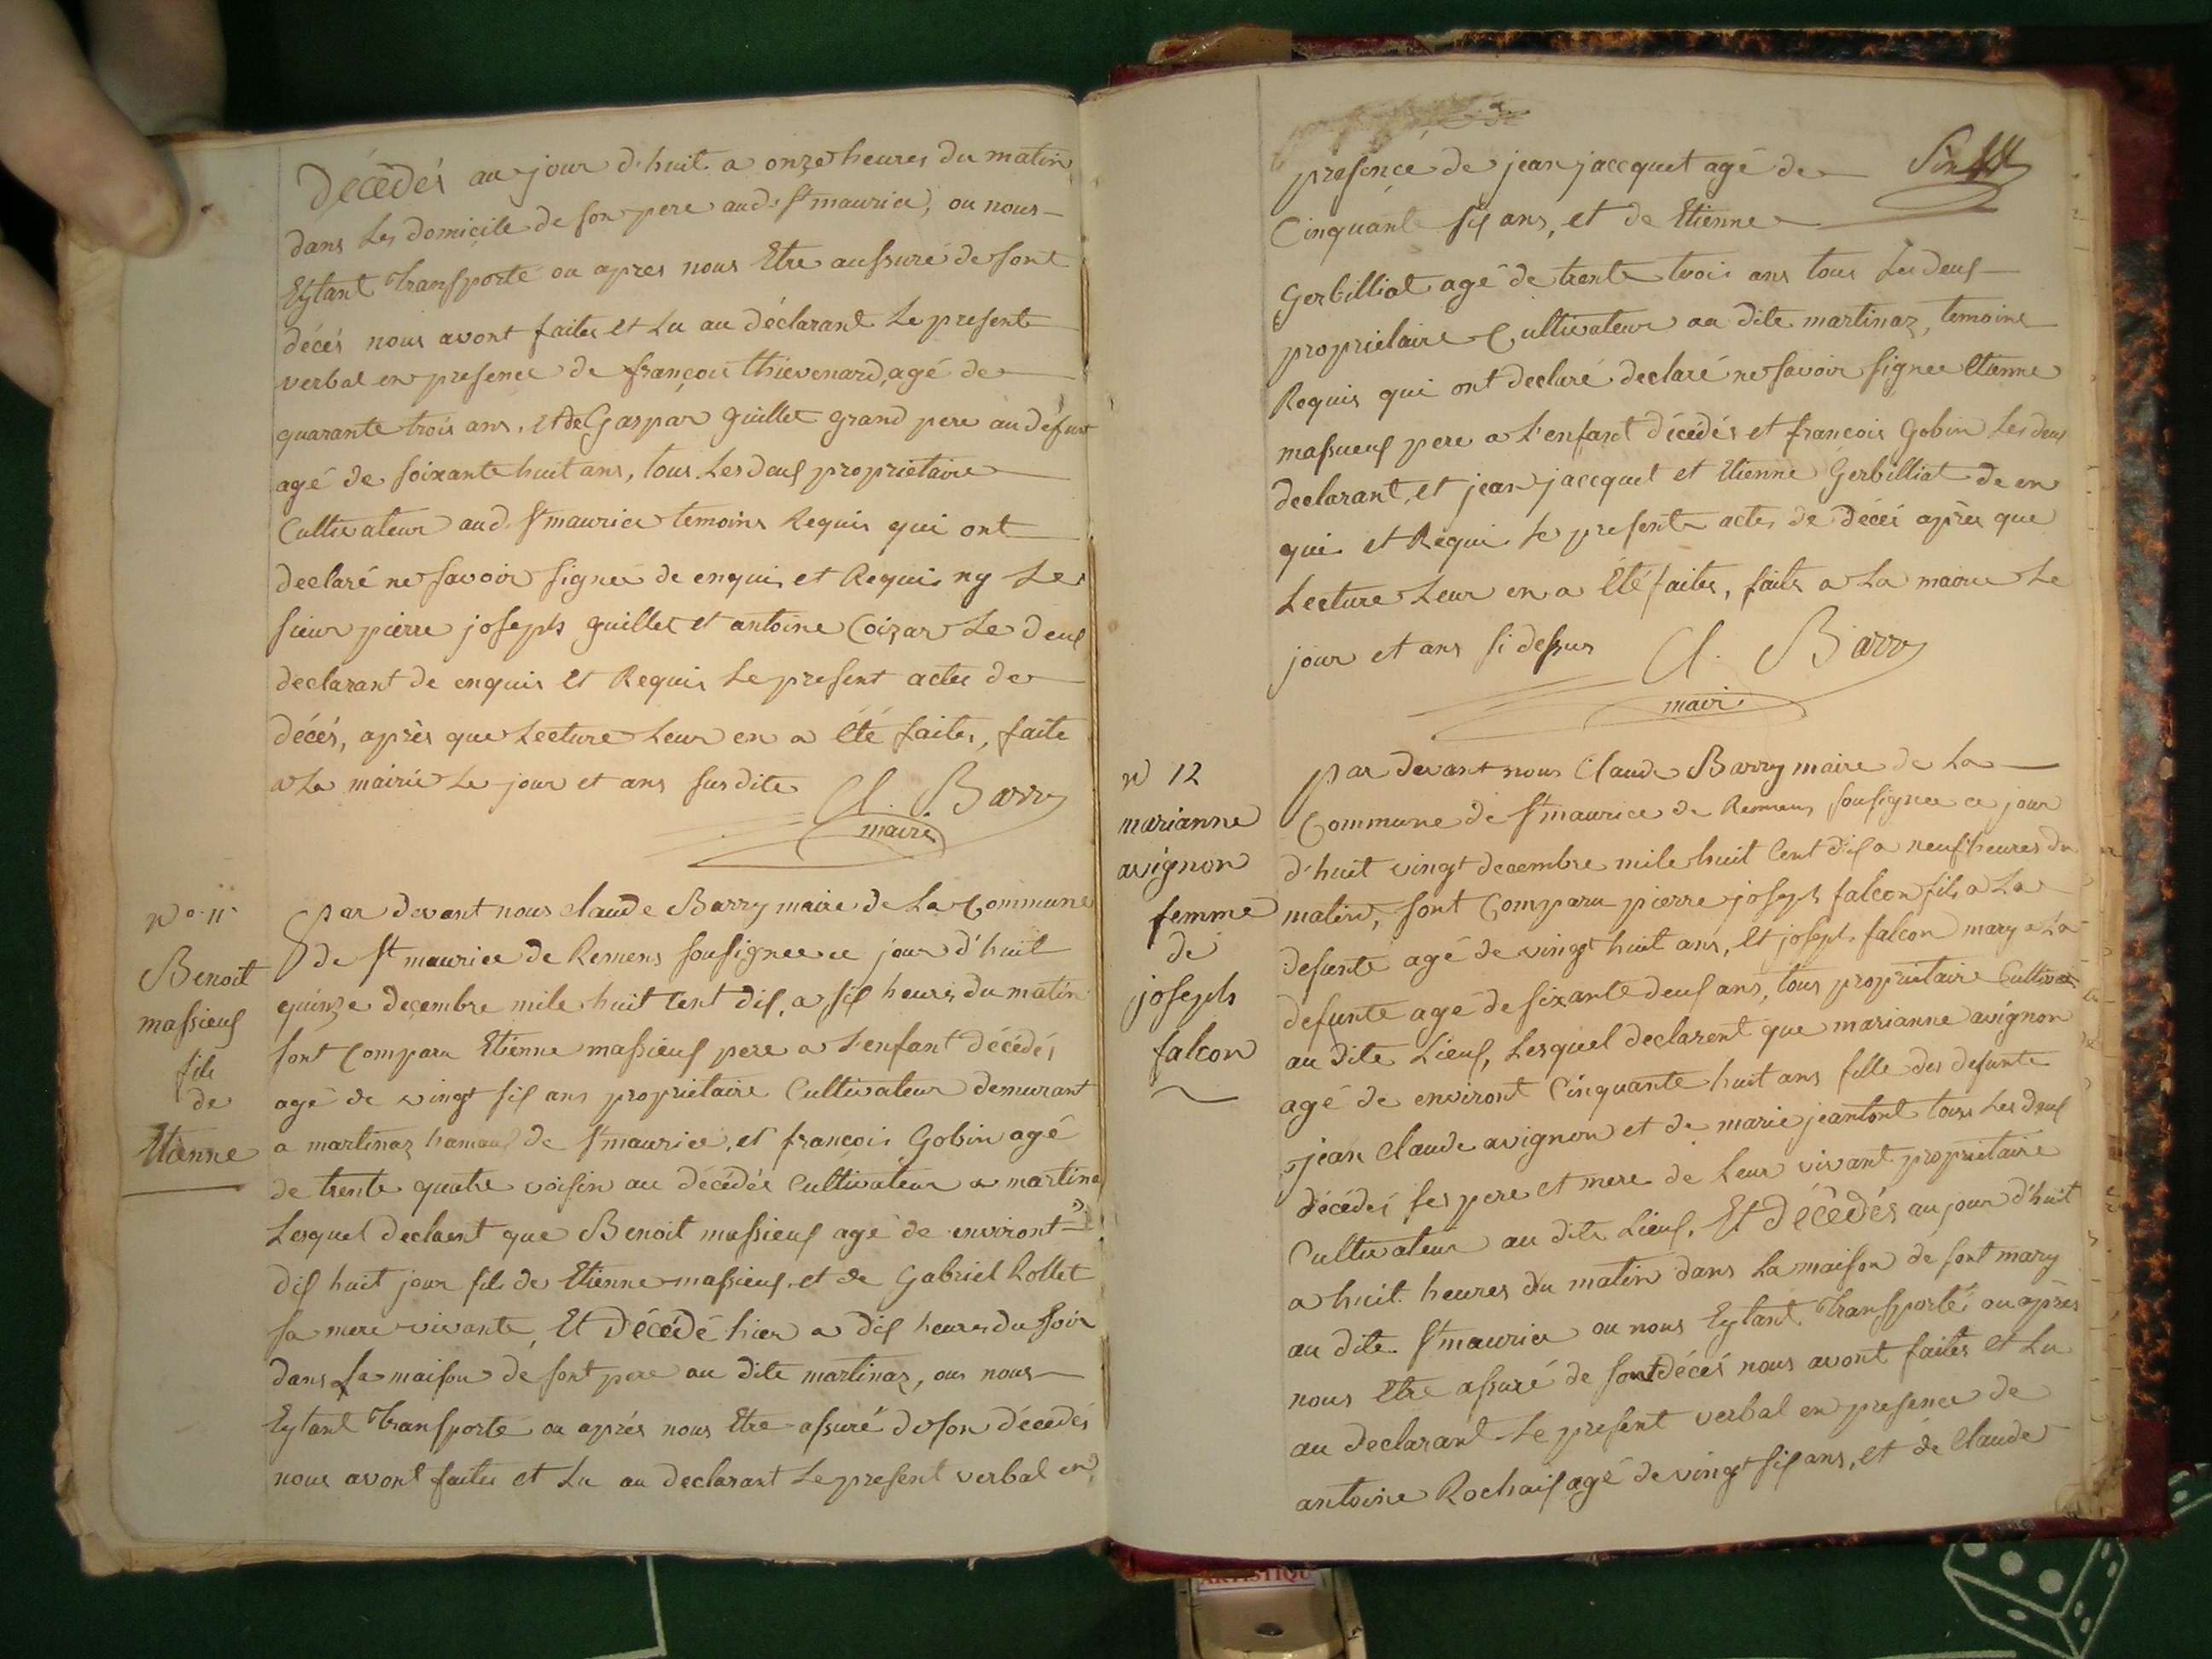 Décédés au jour d'huit a onze heures du matin
dans Les domicile de son pere aud. St maurice, ou nous
Eytant Transporté ou apres nous Etre aussuré de sont
décés nous avont faites et Lu au déclarant Le present
verbal en presence de françois thievenard, agé de
quarante trois ans, et de Gaspar guillet grand pere au défunt
agé de soixante huit ans, tous Les deus proprietaire
Cultivateur aud. St maurice temoins Requis qui ont
declaré ne savoir signée de enquis et Requis ny Le
sieur pierre joseph guillet et antoine Coizar Le deus
declarant de enquis et Requis Le present actes de
décés, après que Lecture Leur en a Eté faites, faite
a La mairie Le jour et ans susdite
Cl. Barry
maire
No 11
Benoit
massieus
fils
de
Etienne
par devant nous claude Barry maire de La Commune
de St maurice de Remens sousignee ce jour d'huit
quinze decembre mile huit cent dis, a sis heures du matin
sont Comparu Etienne massieus pere a L'enfant décédés
agé de vingt sis ans proprietaire Cultivateur demeurant
a martinaz hamaus de St maurice, et francois Gobin agé
de trente quatre voisin au décédés Cultivateur a martinaz
Lesquel declarent que Benoit massieus agé de environt
dis huit jour fils de Etienne massieus et de Gabriel Rollet
sa mere vivante, Et Décédé hier a dis heures du soir
dans La maison de sont pere au dite martinaz, ou nous
Eytant Transporté ou aprés nous Etre assuré de son décedés
nous avont faites et Lu au declarant Le present verbal en
presence de jean jaccquet agé de
Cinquante sis ans, et de Etienne
Gerbilliat agé de trente trois ans tous Les deus
proprietaire Cultivateur au dite martinaz, temoins
Requis qui ont declaré declaré ne savoir signee Etienne
massieus pere a L'enfant décédés et francois Gobin Les deus
declarant, et jean jaccquet et Etienne Gerbilliat de en
quis et Requis Le presente actes de Décés aprês que
Lecture Leur en a Eté faites, faite a La mairie Le
jour et ans si dessus
Cl. Barry
maire
No 12
marianne
avignon
femme
de
joseph
falcon
par devant nous Claude Barry maire de La
Commune de St maurice de Remens sousignee ce jour
d'huit vingt decembre mile huit Cent dis a neuf heures du
matin, sont Comparu pierre joseph falcon fils a La
defunte agé de vingt huit ans, et joseph falcon mary a La
defunte agé de sixante deus ans, tous proprietaire Cultivat
au dite Lieus, Lesquel declarent que marianne avignon
agé de environt Cinquante huit ans fille des defunte
jean Claude avignon et de marie jeantont tous Les deus
décédés ses pere et mere de Leur vivant proprietaire
Cultivateur au dite Lieus, Et Décédés au jour d'huit
a huit heures du matin dans La maison de sont mary
au dite St maurice ou nous Eytant Transportés ou après
nous Etre assuré de sont décés nous avont faites et Lu
au declarant Le present verbal en presence de
antoine Rochais agé de vingt sis ans, et de Claude